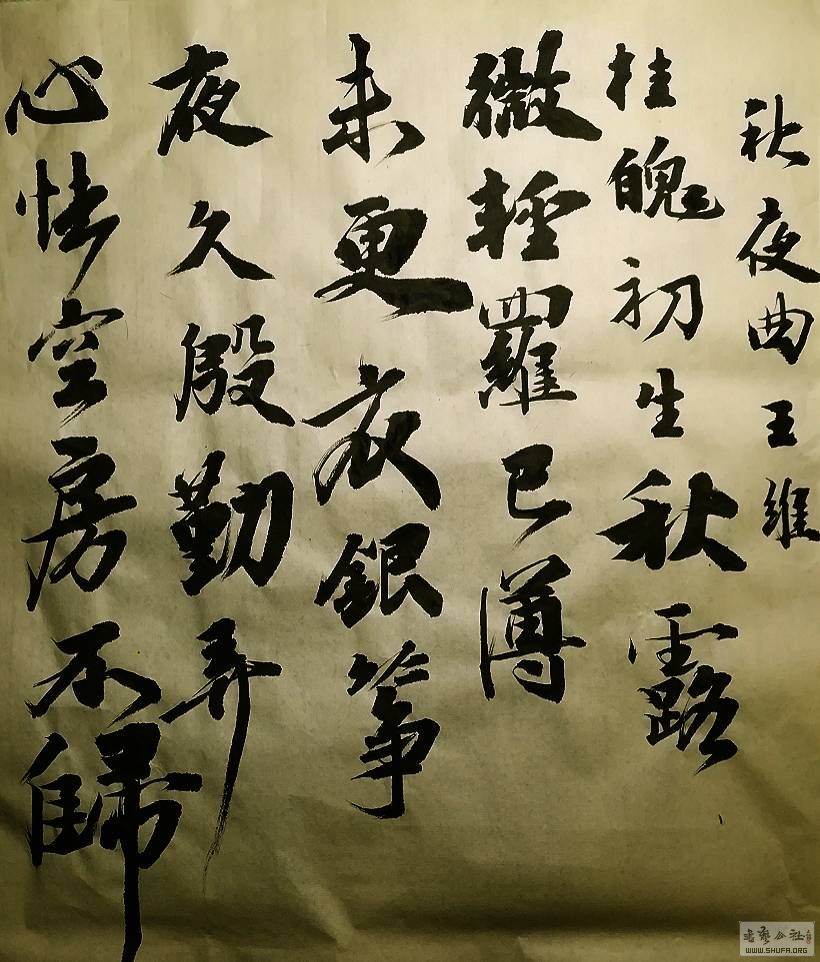 秋夜曲王維
桂魄初生秋露
微輕羅已薄
未更衣銀箏
夜久殷勤弄
心怯空房不歸
書藝公社
WWW.SHUFA.ORG